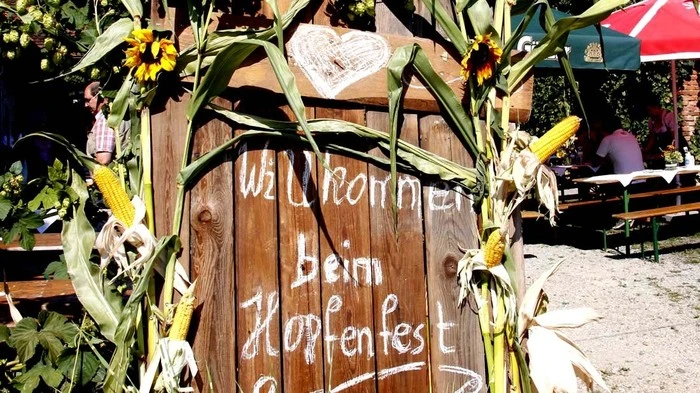 Willkommen
beim
Hopfenfest